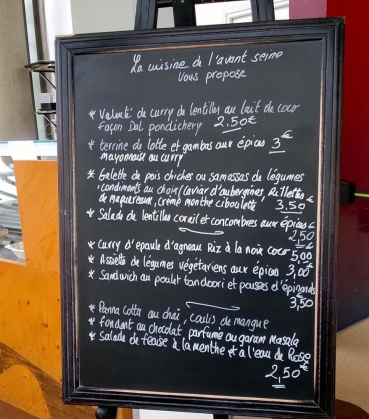 La cuisine de l'avant seine
vous propose
* Velouté de curry de lentilles au lait de coco
façon Dal pondichery 2,50€
* terrine de lotte et gambas aux épices 3€
mayonnaise au curry
* Galette de pois chiches ou samossas de légumes
condiments au choix (caviar d'aubergines, rillettes
de maquereaux, crème menthe ciboulette 3,50
* Salade de lentilles corail et concombres aux épices €
2,50
* Curry d'épaule d'agneau Riz à la noix coco 5,00
* Assiette de légumes végétariens aux épices 3,00
* Sandwich au poulet tandoori et pousses d'épinards
3,50
* Panna Cotta au chaï, coulis de mangue
* fondant au chocolat parfumé au garam masala
* Salade de fraise à la menthe et à l'eau de Rose
2,50€